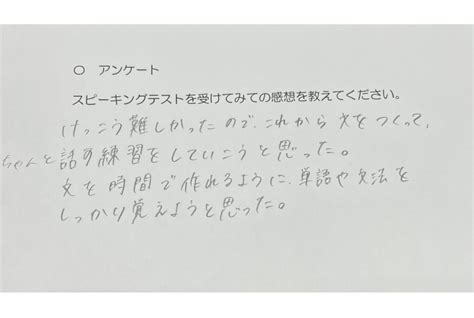 ○ アンケート
スピーキングテストを受けてみての感想を教えてください。
けっこう難しかったので、これから文をつくって、
ちゃんと話す練習をしていこうと思った。
文を時間で作れるように、単語や文法を
しっかり覚えようと思った。